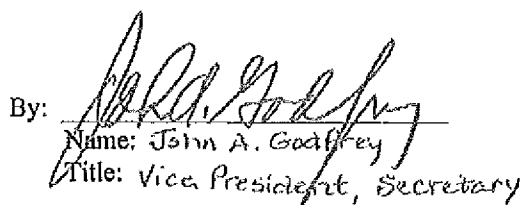 By: John A. Godfrey
Name: John A. Godfrey
Title: Vice President, Secretary